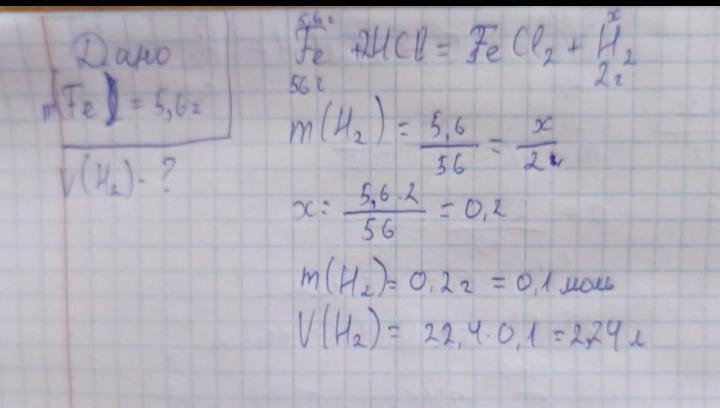 Дано
m(Fe) = 5,6г
V(H₂) - ?
5,6г x
Fe + 2HCl = FeCl₂ + H₂
56г 2г
m(H₂) = 5,6/56 = x/2
x = 5,6·2/56 = 0,2
m(H₂) = 0,2г = 0,1 моль
V(H₂) = 22,4·0,1 = 2,24 л